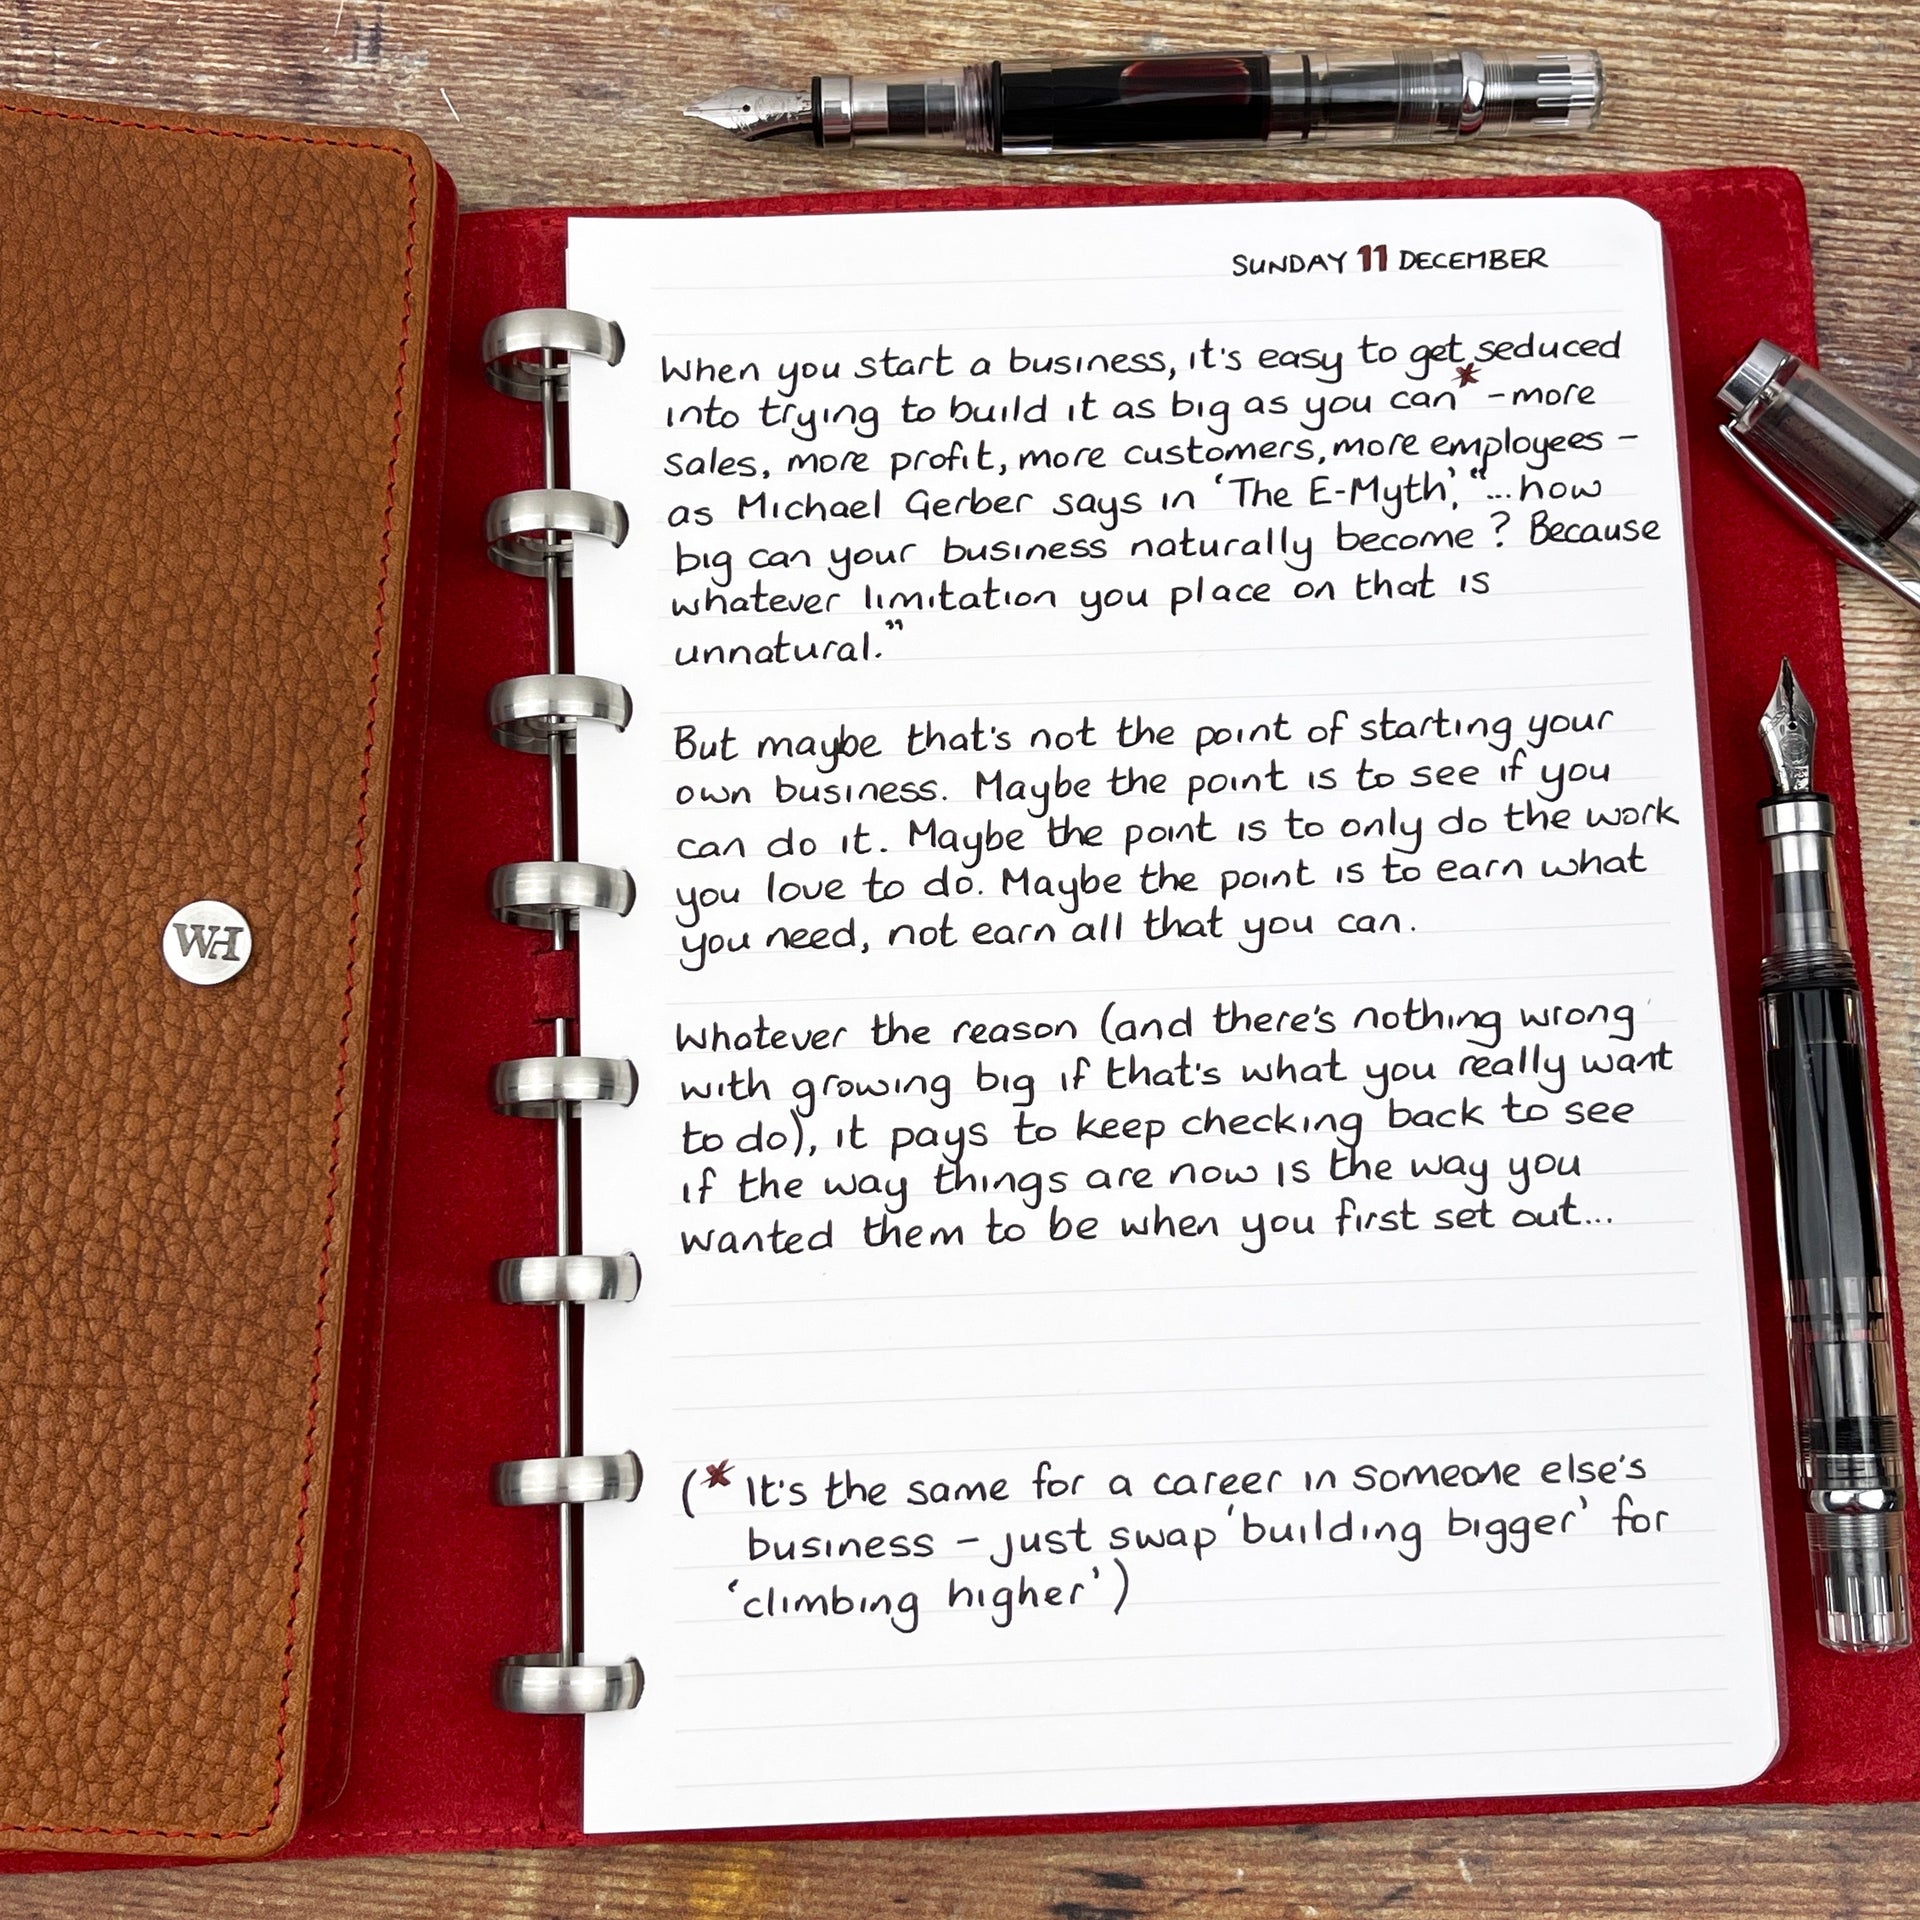 SUNDAY 11 DECEMBER
When you start a business, it's easy to get seduced
into trying to build it as big as you can* - more
sales, more profit, more customers, more employees -
as Michael Gerber says in 'The E-Myth', "...how
big can your business naturally become? Because
whatever limitation you place on that is
unnatural."
But maybe that's not the point of starting your
own business. Maybe the point is to see if you
can do it. Maybe the point is to only do the work
you love to do. Maybe the point is to earn what
you need, not earn all that you can.
Whatever the reason (and there's nothing wrong
with growing big if that's what you really want
to do), it pays to keep checking back to see
if the way things are now is the way you
wanted them to be when you first set out...
(* It's the same for a career in someone else's
business - just swap 'building bigger' for
'climbing higher')
WH